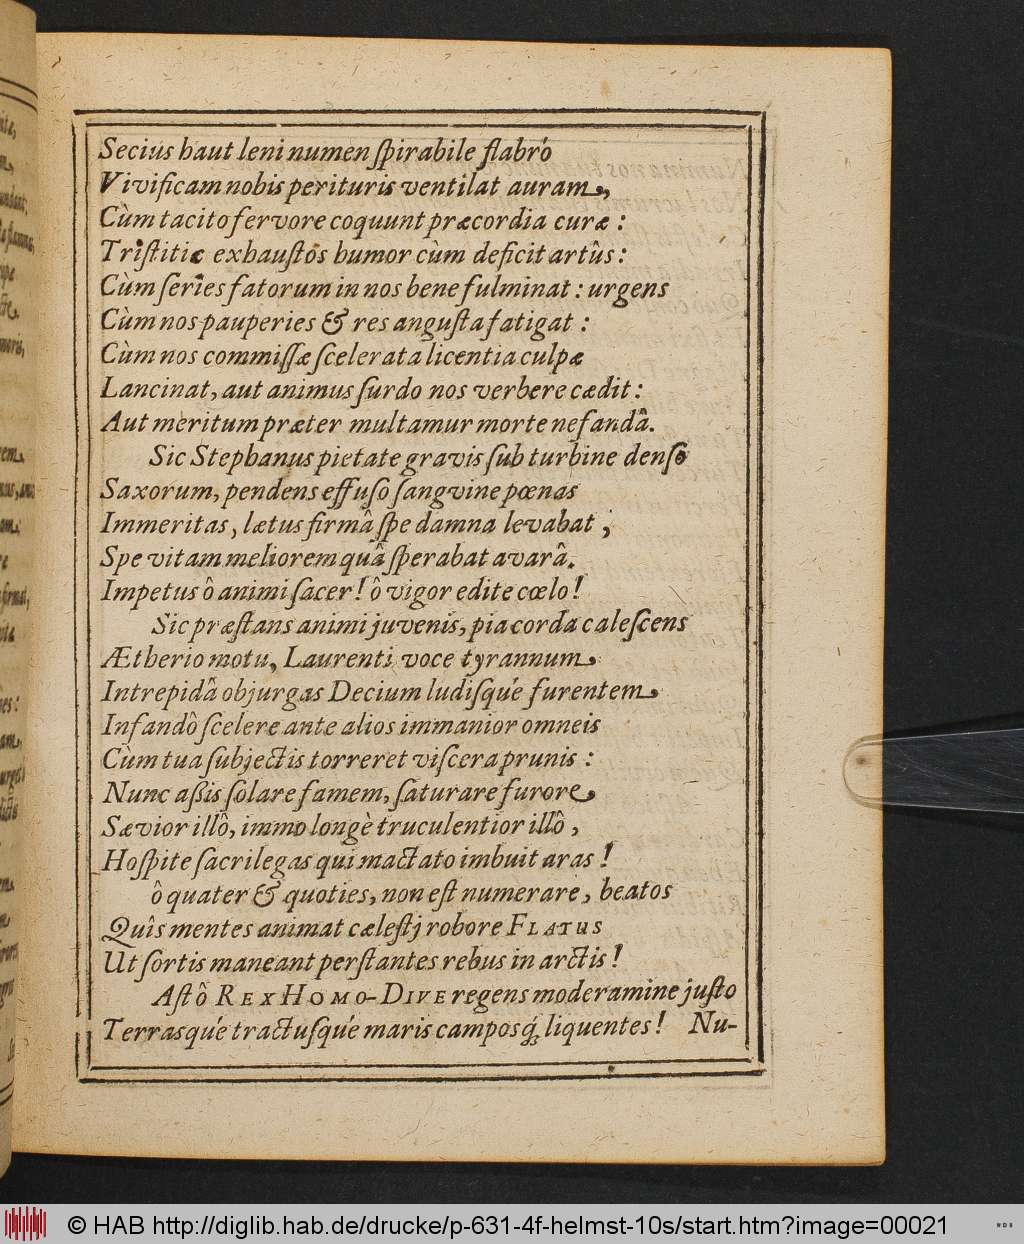 Secius haut leni numen ſpirabile flabró
Vivificam nobis perituris ventilat auram,
Cùm tacito fervore coquunt præcordia curæ :
Triſtitiæ exhauſtos humor cùm deficit artûs :
Cùm ſeries fatorum in nos bene fulminat : urgens
Cùm nos pauperies & res anguſta fatigat :
Cùm nos commiſſæ ſcelerata licentia culpæ
Lancinat, aut animus ſurdo nos verbere cædit :
Aut meritum præter multamur morte nefandâ.
Sic Stephanus pietate gravis ſub turbine denſo
Saxorum, pendens effuſo ſangvine pœnas
Immeritas, lætus firmâ ſpe damna levabat ,
Spe vitam meliorem quâ ſperabat avarâ.
Impetus ô animi ſacer ! ô vigor edite cœlo !
Sic præſtans animi juvenis, pia corda caleſcens
Ætherio motu, Laurenti voce tyrannum
Intrepidâ objurgas Decium ludiſqúe furentem
Infandô ſcelere ante alios immanior omneis
Cùm tua ſubjectis torreret viſcera prunis :
Nunc aßis ſolare famem, ſaturare furore
Sævior illô, immo longè truculentior illô ,
Hoſpite ſacrilegas qui mactato imbuit aras !
ô quater & quoties, non eſt numerare, beatos
Quîs mentes animat cæleſtj robore FLATUS
Ut ſortis maneant perſtantes rebus in arctis !
Aſt ô REX HOMO-DIVE regens moderamine juſto
Terrasqúe tractuſqúe maris camposq́; liquentes ! Nu-
© HAB http://diglib.hab.de/drucke/p-631-4f-helmst-10s/start.htm?image=00021